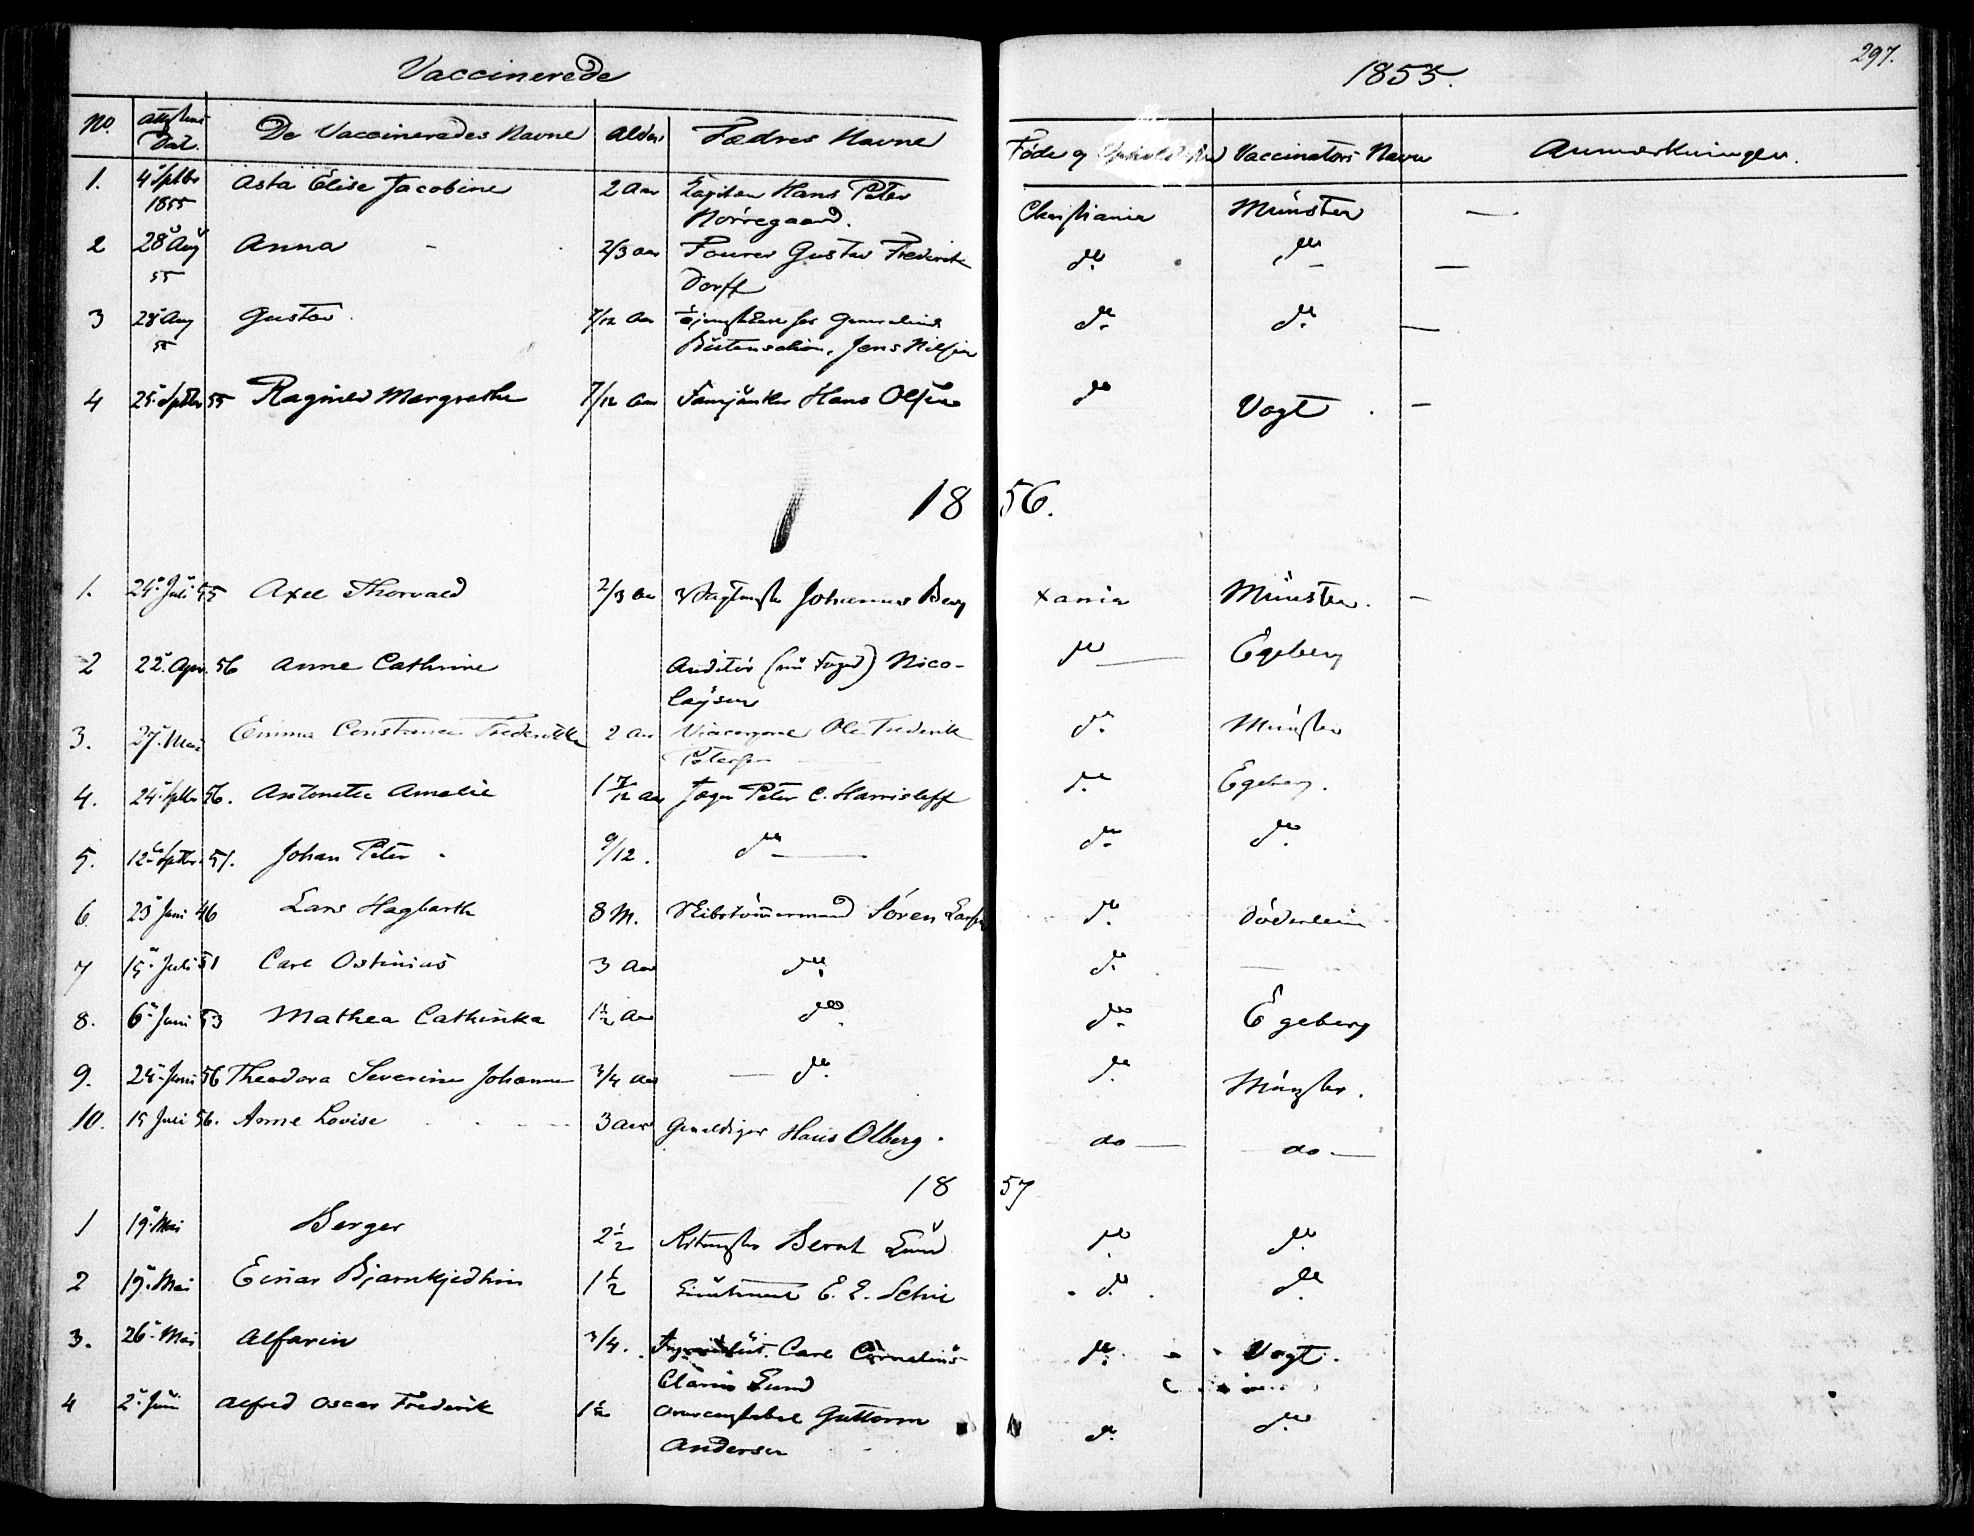 Vaccinerede 1855. 297.
No. Attestens Dat. De Vaccineredes Navne Alder Fædres Navne Føde og Vaccinators Navn Anmærkninger.
1. 4 Septbr 1855 Asta Elise Jacobine 2 Aar Capitain Hans Peter Nørregaard. Christiania Münster —
2 28 Aug 55 Anna - 2/3 Aar Fourer Gustav Frederik Dorff do. do —
3 28 Aug 55 Gustav 7/12 Aar Jens Nilsen do. do. —
4 25 Septbr 55 Ragnild Margrethe 7/12 Aar Hans Olsen do Vogt. —
1856.
1. 24. Juli 55 Axel Thorvald 2/3 Aar Vagtmester Johannes Berg Xania Münster. —
2 22. Apr. 56 Anne Cathrine Auditør (nu Foged) Nicolaysen do — Egeberg
3. 27. Mai Emma Constance Frederikke 2 Aar Ole Frederik Petersen do. Münster
4. 24. Septbr 56. Antonette Amalie 1 7/12 Aar Peter C. do Egeberg.
5. 12 Septbr. 51. Johan Peter 9/12. do — do. do.
6. 23 Juni 46 Lars Hagbarth 8 M. Skibstømmermand Søren do. Döderlein
7 15. Juli 51 Carl Ostinius 3 Aar do. do. —
8. 6. Juni 53 Mathea Cathinka 1½ Aar do. do. Egeberg
9. 24. Juni 56 Theodora Severine Johanne 3/4 Aar — do. do. Münster.
10. 15 Juli 56. Anne Lovise 3 Aar Gevaldiger Hans Olberg. do — do. —
1857
1 19. Mai Berger 2½ Ritmester Bernt Lund do. do.
2 19. Mai Einar 1½ Lieutenant E. E. do. do.
3. 26. Mai Alfarin 3/4. Carl Cornelius Lund do. Vogt.
4 2. Juni Alfred Oscar Frederik 1½ Guttorm Andersen do. do.